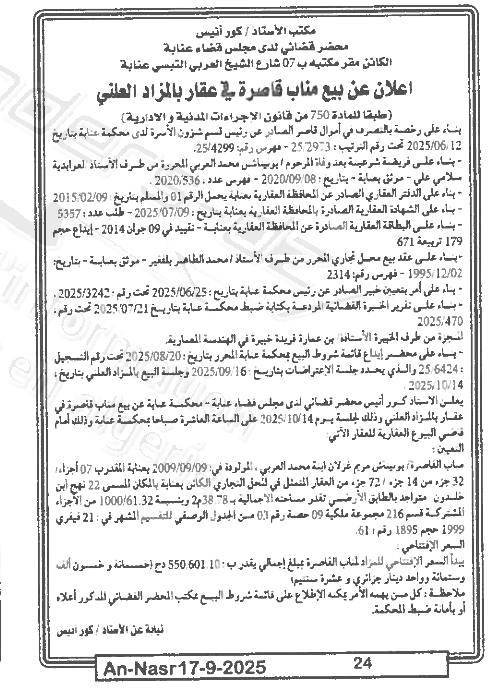 مكتب الأستاذ/ كور أنيس
محضر قضائي لدى مجلس قضاء عنابة
الكائن مقر مكتبه ب 07 شارع الشيخ العربي التبسي عنابة
اعلان عن بيع مناب قاصرة في عقار بالمزاد العلني
(طبقا للمادة 750 من قانون الاجراءات المدنية و الادارية)
بناء على رخصة بالتصرف في أموال قاصر الصادر عن رئيس قسم شؤون الأسرة لدى محكمة عنابة بتاريخ
2025/06/12 تحت رقم الترتيب : 25/2973 - فهرس رقم: 25/4299.
- بناء على فريضة شرعية بعد وفاة المرحوم / بوسيتاش محمد العربي المحررة من طرف الأستاذ العوايدية
سلامي علي - موثق بعنابة - بتاريخ : 2020/09/08 - فهرس عدد : 2020/536.
- بناء على الدفتر العقاري الصادر عن المحافظة العقارية بعنابة يحمل الرقم 01 والمسلم بتاريخ : 2015/02/09
- بناء على الشهادة العقارية الصادرة بالمحافظة العقارية بعنابة بتاريخ : 2025/07/09 - طلب عدد : 5357
- بناء على البطاقة العقارية الصادرة عن المحافظة العقارية بعنابة - تقييد في 09 جوان 2014 - إيداع حجم
179 تربيعة 671
- بناء على عقد بيع محل تجاري المحرر من طرف الأستاذ / محمد الطاهر بلفقير - موثق بعنابة - بتاريخ:
1995/12/02 - فهرس رقم: 2314.
- بناء على أمر بتعيين خبير الصادر عن رئيس محكمة عنابة بتاريخ : 2025/06/25 تحت رقم : 2025/3242.
- بناء على تقرير الخبرة القضائية المودعة بكتابة ضبط محكمة عنابة بتاريخ 2025/07/21 تحت رقم :
2025/470
المنجزة من طرف الخبيرة الأستاذة/ بن عمارة فريدة خبيرة في الهندسة المعمارية.
- بناء على محضر إيداع قائمة شروط البيع بمحكمة عنابة المحرر بتاريخ : 2025/08/20 تحت رقم التسجيل
: 25/6424 والذي يحدد جلسة الاعتراضات بتاريخ : 2025/09/16 وجلسة البيع بالمزاد العلني بتاريخ :
2025/10/14.
يعلن الاستاذ كور أنيس محضر قضائي لدى مجلس قضاء عنابة - محكمة عنابة عن بيع مناب قاصرة في
عقار بالمزاد العلني وذلك لجلسة يوم 2025/10/14 على الساعة العاشرة صباحا بمحكمة عنابة وذلك أمام
قاضي البيوع العقارية للعقار الآتي:
التعيين :
مناب القاصرة/ بوسيتاش مريم غزلان ابنة محمد العربي ، المولودة في: 2009/09/09 بعنابة المقدر ب 07 أجزاء/
32 جزء من 14 جزء / 72 جزء من العقار المتمثل في المحل التجاري الكائن بعنابة بالمكان المسمى 22 نهج ابن
خلدون متواجد بالطابق الأرضي تقدر مساحته الاجمالية بـ 38.78م2 وبنسبة 1000/61.32 من الأجزاء
المشتركة قسم 216 مجموعة ملكية 09 حصة رقم 03 من الجدول الوصفي للتقسيم المشهر في : 21 فيفري
1999 حجم 1895 رقم : 61.
السعر الإفتتاحي :
يبدأ السعر الإفتتاحي للمزاد لمناب القاصرة بمبلغ إجمالي يقدر ب : 550.601.10 دج (خمسمائة و خمسون ألف
وستمائة وواحد دينار جزائري و عشرة سنتيم)
ملاحظة : كل من يهمه الأمر يمكنه الإطلاع على قائمة شروط البيع بمكتب المحضر القضائي المذكور أعلاه
أو بأمانة ضبط المحكمة.
نيابة عن الأستاذ / كور أنيس
An-Nasr 17-9-2025
24